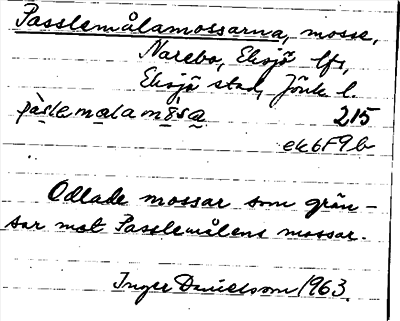 Passlemålamossarna, mosse,
Narebo, Eksjö lfs,
Eksjö stad, Jönk l.
pàslemalamósa 215
ek6F9b
Odlade mossar som grän-
sar mot Passlemålens mossar.
Inger Danielsson 1963.